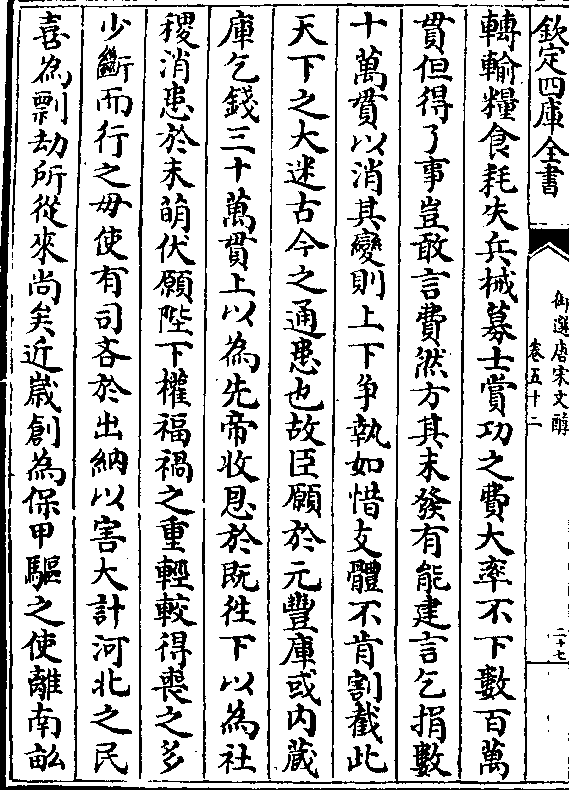 欽定四庫全書
御選唐宋文醇
卷五十二
二十七
轉輸糧食耗失兵械募士賞功之費大率不下數百萬
貫但得了事豈敢言費然方其未發有能建言乞捐數
十萬貫以消其變則上下争執如惜支體不肯割截此
天下之大迷古今之通患也故臣願於元豐庫或内蔵
庫乞錢三十萬貫上以為先帝收恩於既徃下以為社
稷消患於未萌伏願陛下權福禍之重輕較得喪之多
少斷而行之毋使有司吝於出納以害大計河北之民
喜為剽劫所從來尚矣近嵗創為保甲驅之使離南畝